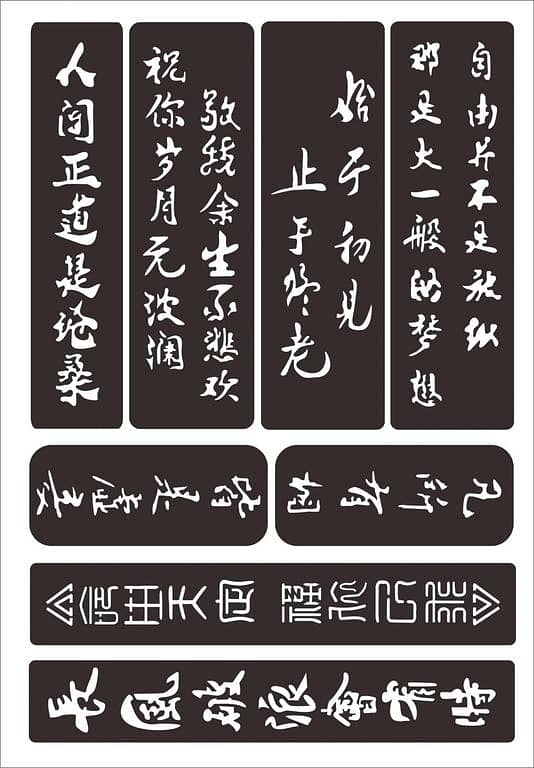 人间正道是沧桑
祝你岁月无波澜
敬我余生不悲欢
始于初见
止于终老
自由并不是放纵
那是火一般的梦想
凡所有相
皆是虚妄
長風破浪會有時